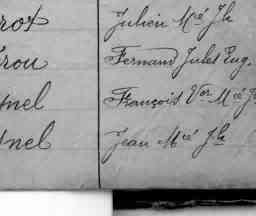 rox Julien Mié Jh
rou Fernand Jules Eug.
nel François Vor Mié J
nel Jean Mié Jh